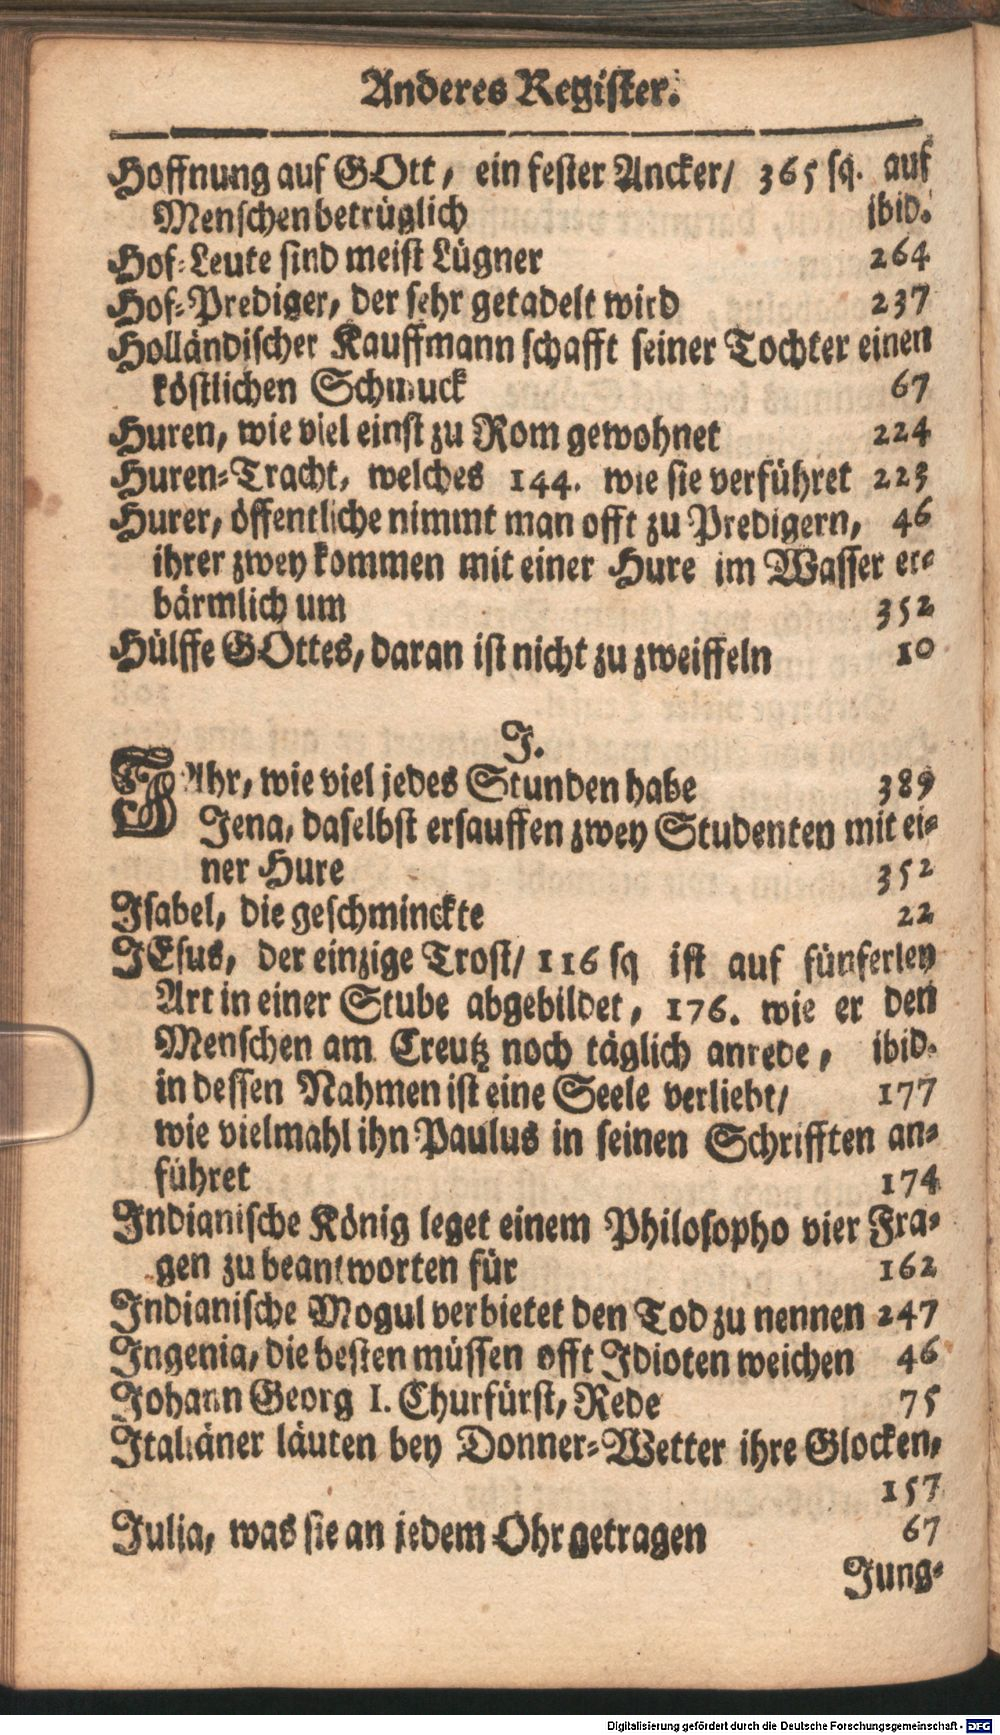 Anderes Register.
Hoffnung auf GOtt, ein fester Ancker/ 365 sq. auf
Menschen betrüglich ibid.
Hof-Leute sind meist Lügner 264
Hof-Prediger, der sehr getadelt wird 237
Holländischer Kauffmann schafft seiner Tochter einen
köstlichen Schmuck 67
Huren, wie viel einst zu Rom gewohnet 224
Huren-Tracht, welches 144. wie sie verführet 223
Hurer, öffentliche nimmt man offt zu Predigern, 46
ihrer zwey kommen mit einer Hure im Wasser er-
bärmlich um 352
Hülffe GOttes, daran ist nicht zu zweiffeln 10
J.
JAhr, wie viel jedes Stunden habe 389
Jena, daselbst ersauffen zwey Studenten mit ei-
ner Hure 352
Isabel, die geschminckte 22
JEsus, der einzige Trost/ 116 sq ist auf fünferley
Art in einer Stube abgebildet, 176. wie er den
Menschen am Creutz noch täglich anrede, ibid.
in dessen Nahmen ist eine Seele verliebt/ 177
wie vielmahl ihn Paulus in seinen Schrifften an-
führet 174
Indianische König leget einem Philosopho vier Fra-
gen zu beantworten für 162
Indianische Mogul verbietet den Tod zu nennen 247
Ingenia, die besten müssen offt Idioten weichen 46
Johann Georg I. Churfürst, Rede 75
Italiäner läuten bey Donner-Wetter ihre Glocken,
157
Julia, was sie an jedem Ohr getragen 67
Jung-
Digitalisierung gefördert durch die Deutsche Forschungsgemeinschaft - DFG